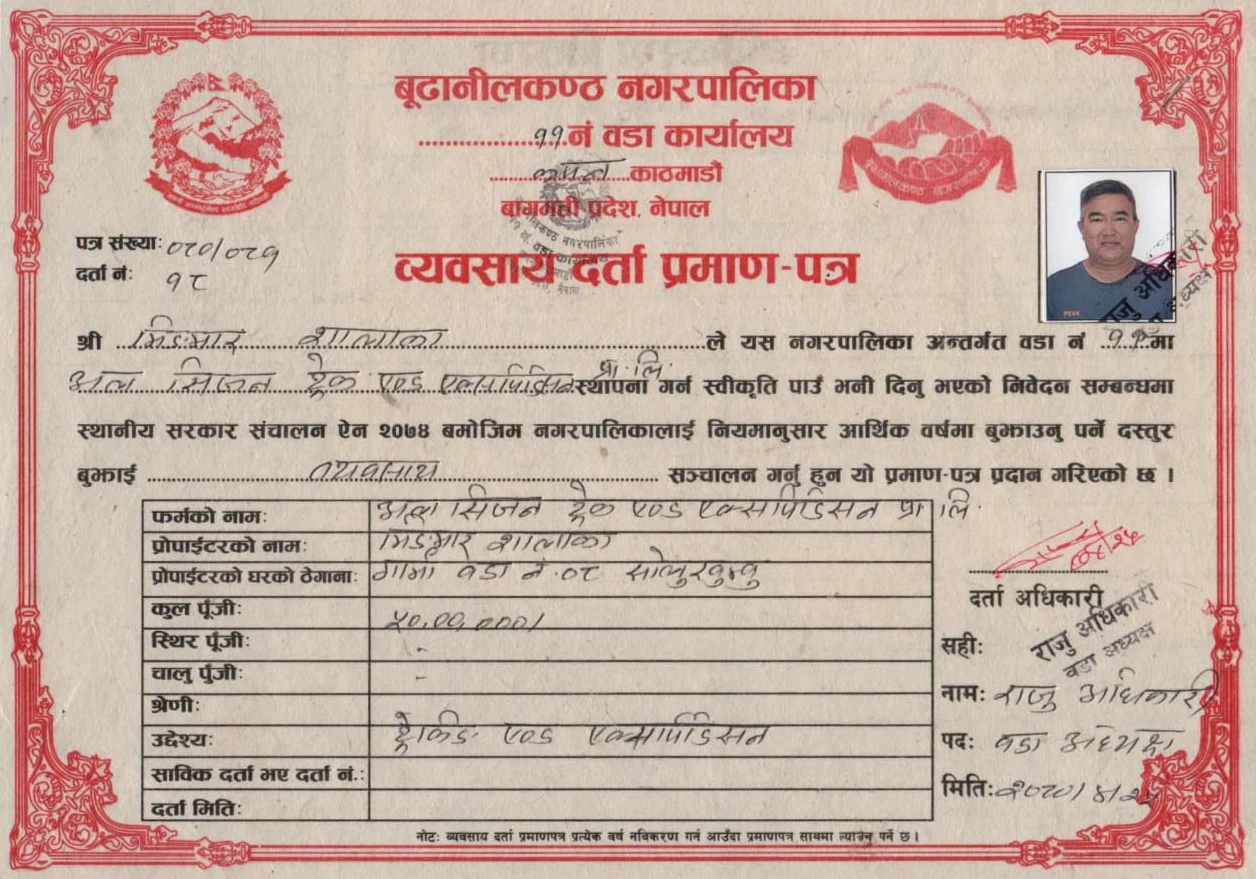 बूढानीलकण्ठ नगरपालिका
११ नं वडा कार्यालय
कपन काठमाडौं
बागमती प्रदेश, नेपाल
व्यवसाय दर्ता प्रमाण-पत्र
पत्र संख्याः ०८०/०८१
दर्ता नंः १८
श्री मिङमार शालाका ले यस नगरपालिका अन्तर्गत वडा नं ११ मा
अल सिजन ट्रेक एण्ड एक्सपिडिसन प्रा.लि. स्थापना गर्न स्वीकृति पाउँ भनी दिनु भएको निवेदन सम्बन्धमा
स्थानीय सरकार संचालन ऐन २०७४ बमोजिम नगरपालिकालाई नियमानुसार आर्थिक वर्षमा बुझाउनु पर्ने दस्तुर
बुझाई व्यवसाय सञ्चालन गर्नु हुन यो प्रमाण-पत्र प्रदान गरिएको छ ।
फर्मको नामः अल सिजन ट्रेक एण्ड एक्सपिडिसन प्रा लि.
प्रोपाईटरको नामः मिङमार शालाका
प्रोपाईटरको घरको ठेगानाः वडा नं. ०८ सोलुखुम्बु
कुल पूँजीः ५०,००,०००/
स्थिर पूँजीः -
चालु पूँजीः -
श्रेणीः
उद्देश्यः ट्रेकिङ एण्ड एक्सपिडिसन
साविक दर्ता भए दर्ता नं.:
दर्ता मितिः
दर्ता अधिकारी
सहीः राजु अधिकारी
वडा अध्यक्ष
नामः राजु अधिकारी
पदः वडा अध्यक्ष
मितिः २०८०/४/२५
नोटः व्यवसाय दर्ता प्रमाणपत्र प्रत्येक वर्ष नविकरण गर्न आउँदा प्रमाणपत्र साथमा ल्याउनु पर्ने छ ।